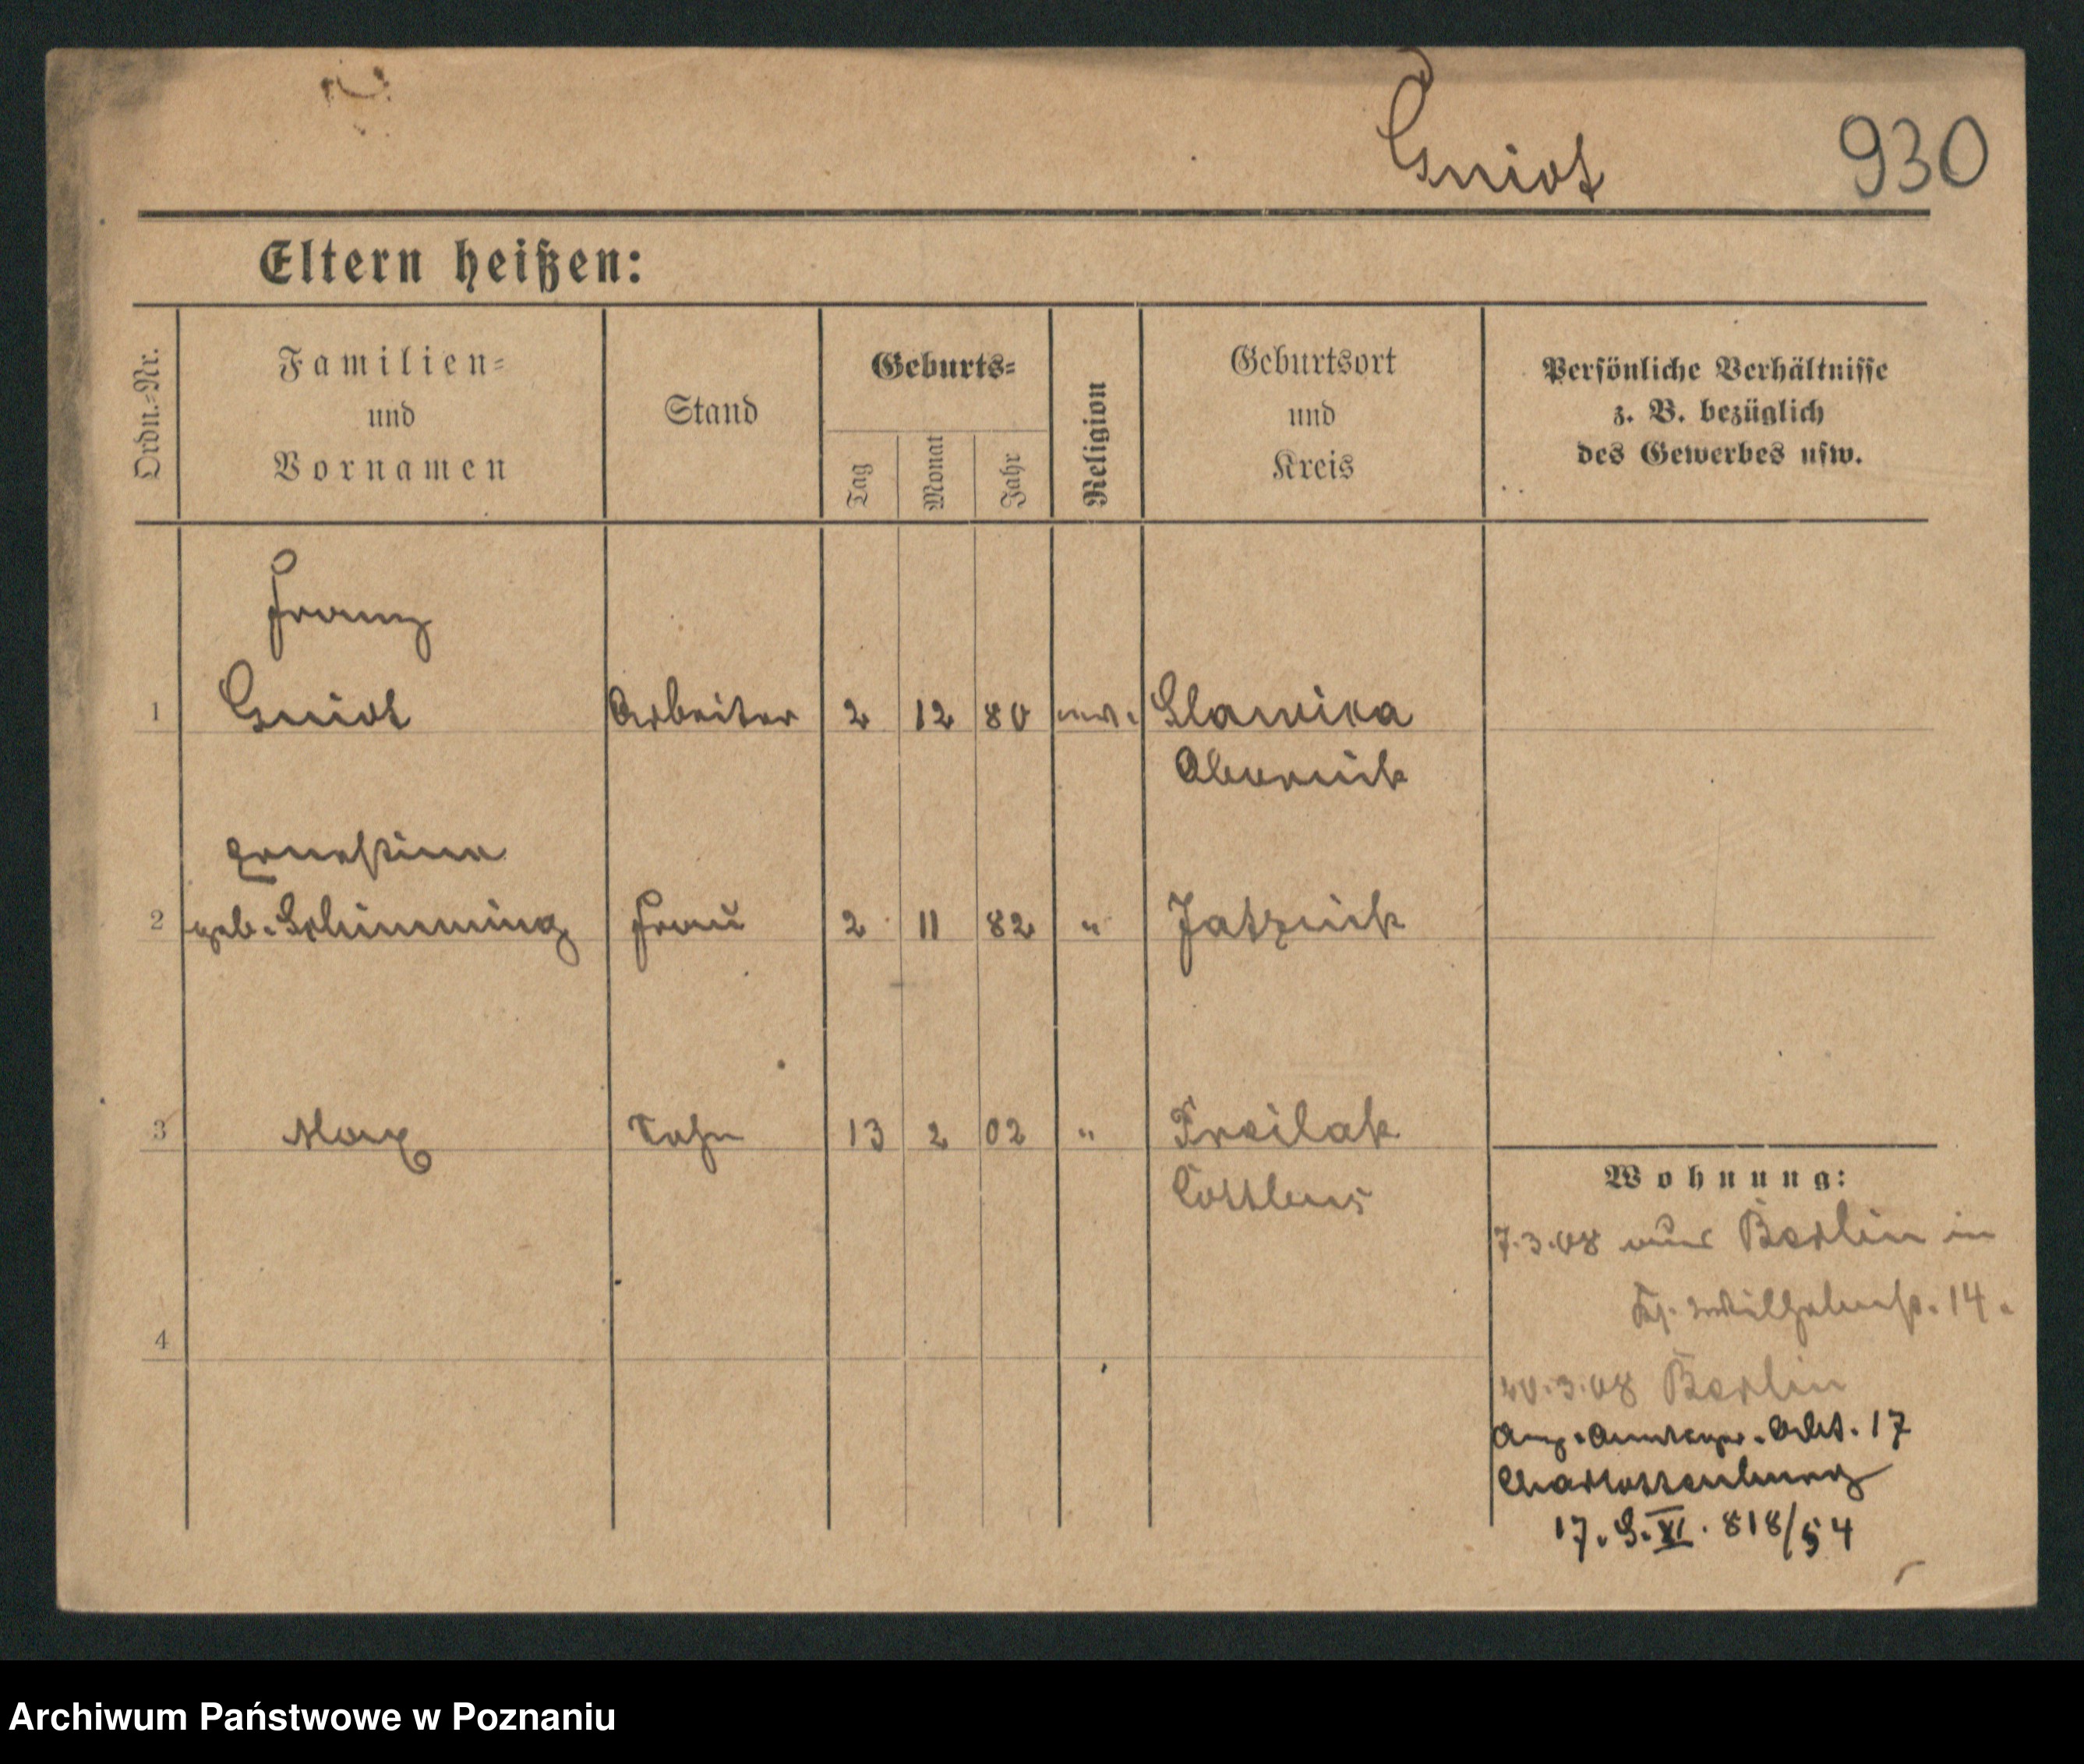 Gniot 930
Eltern heißen:
Ordn.-Nr.
Familien-
und
Vornamen
Stand
Geburts-
Tag
Monat
Jahr
Religion
Geburtsort
und
Kreis
Persönliche Verhältnisse
z. B. bezüglich
des Gewerbes usw.
Franz
1 Gniot Arbeiter 2 12 80 ev. Slawica
Obornik
Ernestine
2 geb. Schimming Frau 2 11 82 " Jatznick
3 Max Sohn 13 2 02 "
4
Wohnung:
7.3.08 aus Berlin in
Wilhelmst. 14.
20.3.08 Berlin
17
Charlottenburg
17. 9. XI. 818/54
Archiwum Państwowe w Poznaniu